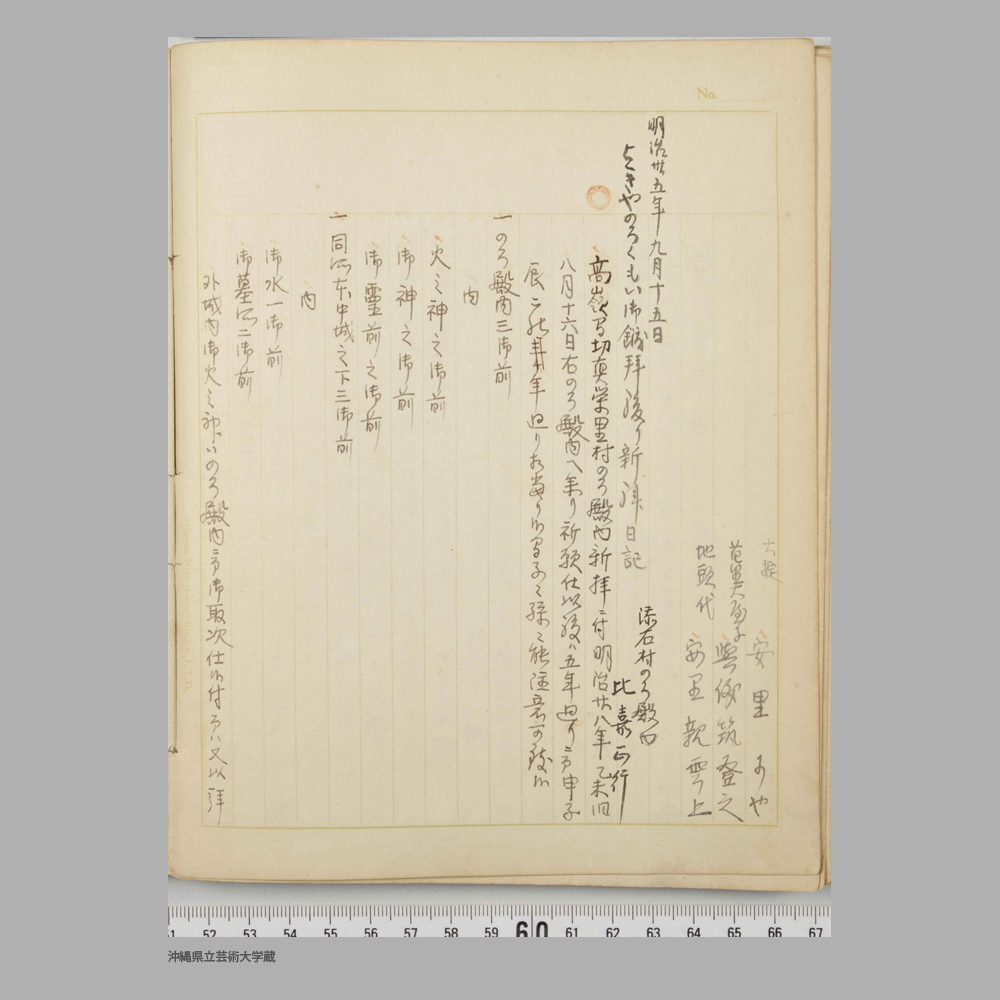 大掟 安里 まや
苗里大屋子 與儀筑登之
地頭代 安里親雲上
明治卅五年九月十五日
ときやのろくもい御鏡拝後り新拝日記
添石村のろ殿内
比嘉正行
高嶺間切真栄里村のろ殿内新拝ニ付明治廿八年乙未旧
八月十六日右のろ殿内へ參り祈願仕以後ハ五年廻りニ而申子
辰ニ 年廻り相当り候 子ミ孫ミ 可致候
一のろ殿内三御前
内
火之神之御前
御神之御前
御霊前之御前
一同所本中城之下三御前
内
御水一御前
御墓所二御前
外城内御火之神ハのろ殿内ニ而御取次仕候付 又以拝
No.
51 52 53 54 55 56 57 58 59 60 61 62 63 64 65 66 67
沖縄県立芸術大学蔵